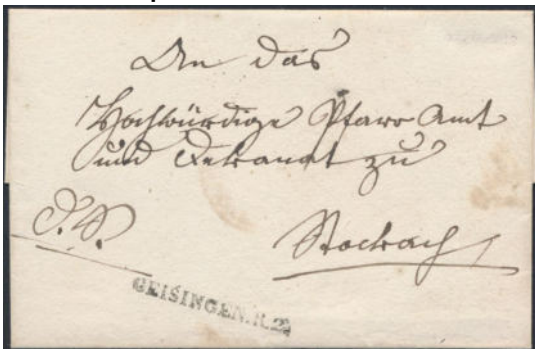 An das
Hochwürdige Pfarr Amt
und Dekanat zu
D.S.
Stockach
GEISINGEN.R.2.